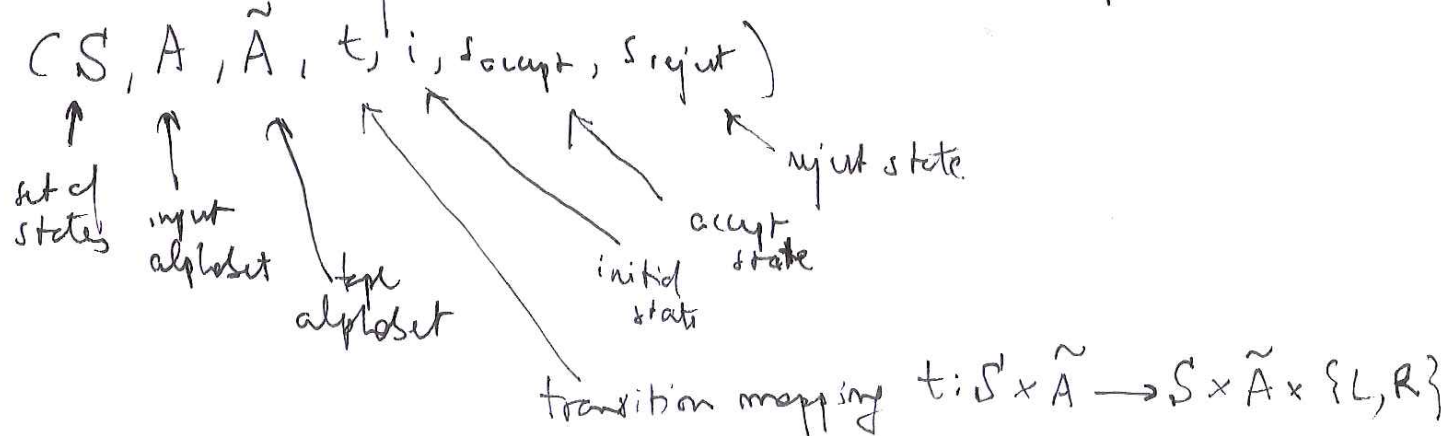 (S, A, Ã, t, i, s_accept, s_reject)
set of
states
input
alphabet
tape
alphabet
initial
state
accept
state
reject state
transition mapping t: S × Ã → S × Ã × {L, R}